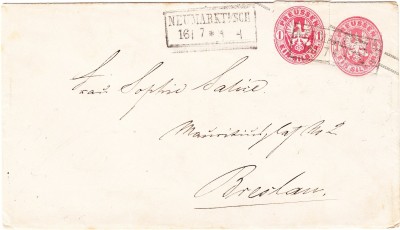 NEUMARKT I/SCH
16 7 * 4
PREUSSEN
1 1
EIN SILB. GR.
PREUSSEN
EIN SILB. GR.
Frau Sophie
Mauritiusplatz No 2
Breslau.